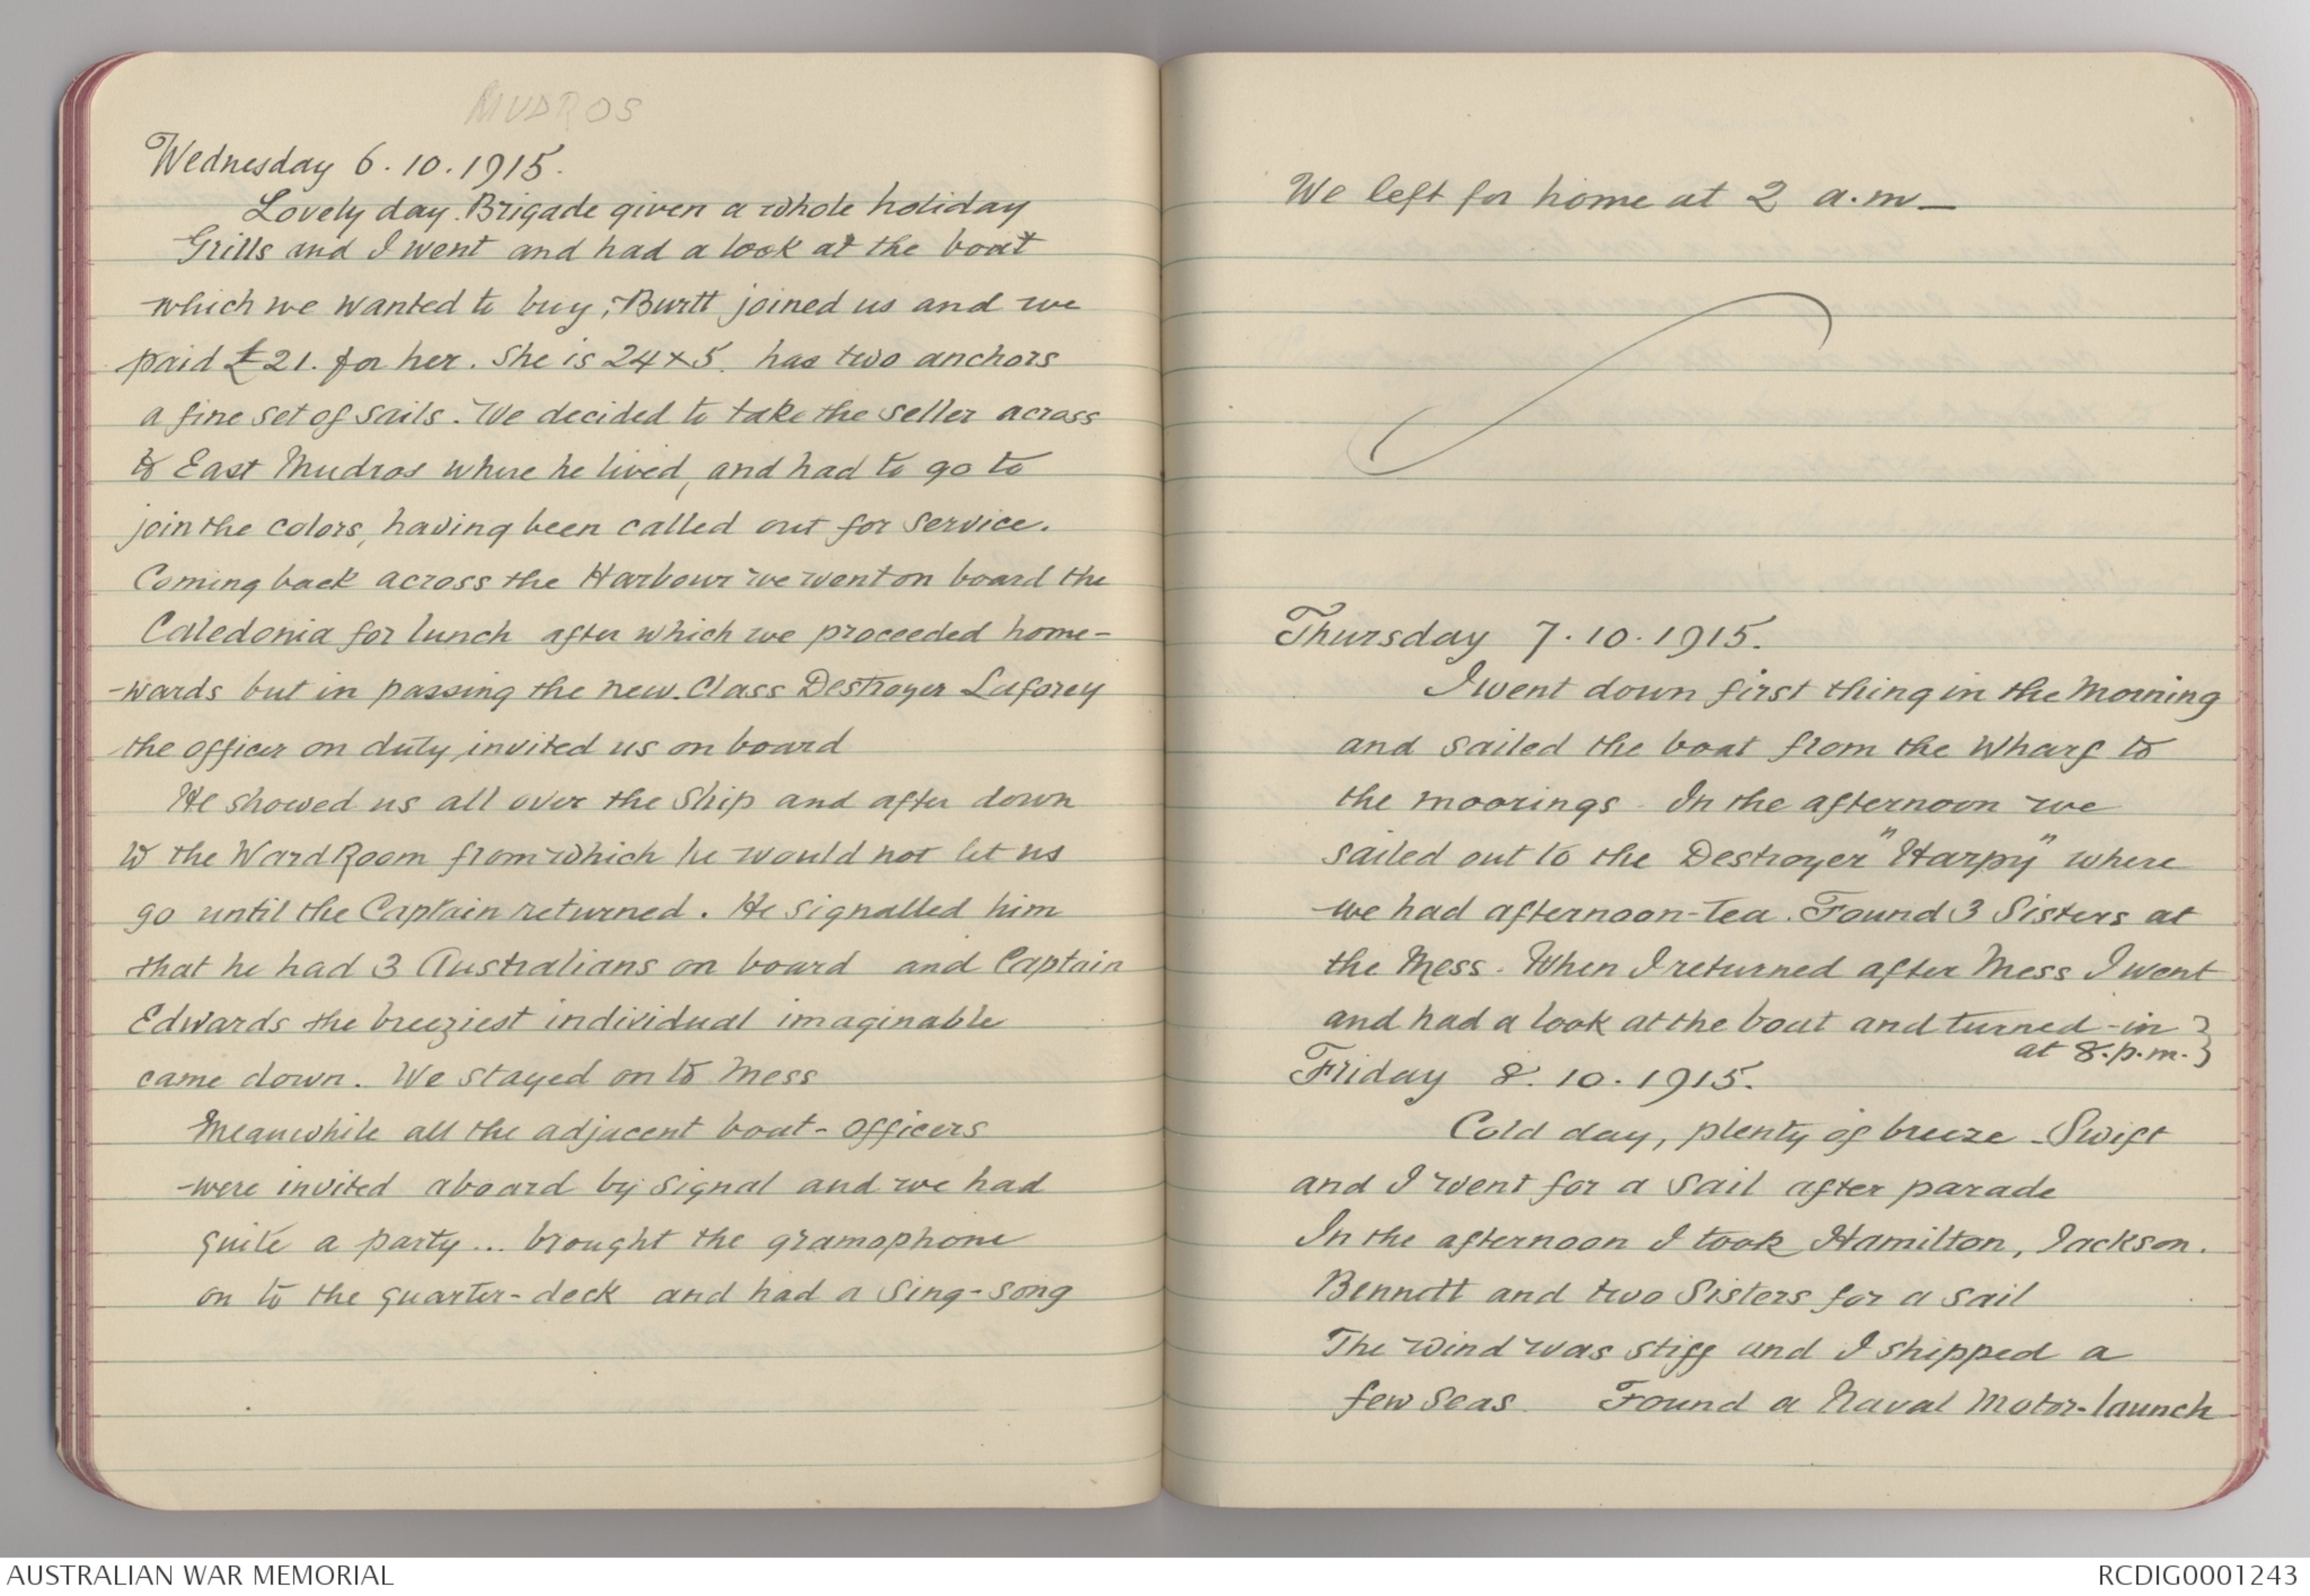 MUDROS
Wednesday 6.10.1915.
Lovely day. Brigade given a whole holiday
Grills and I went and had a look at the boat
which we wanted to buy; Burtt joined us and we
paid £21. for her. She is 24x5. has two anchors
a fine set of sails. We decided to take the seller across
to East Mudros where he lived, and had to go to
join the colors, having been called out for service.
Coming back across the Harbour we went on board the
Caledonia for lunch after which we proceeded home-
-wards but in passing the new. Class Destroyer Laforey
the officer on duty, invited us on board
He showed us all over the Ship and after down
to the Ward Room from which he would not let us
go until the Captain returned. He signalled him
that he had 3 Australians on board and Captain
Edwards the breeziest individual imaginable
came down. We stayed on to Mess
Meanwhile all the adjacent boat-officers
were invited aboard by signal and we had
quite a party... brought the gramophone
on to the quarter-deck and had a sing-song
We left for home at 2 a.m_
Thursday 7.10.1915.
I went down first thing in the morning
and sailed the boat from the Wharf to
the moorings In the afternoon we
sailed out to the Destroyer "Harpy" where
we had afternoon-tea. Found 3 Sisters at
the Mess. When I returned after Mess I went
and had a look at the boat and turned-in }
at 8.p.m. }
Friday 8.10.1915.
Cold day, plenty of breeze _ Swift
and I went for a sail after parade
In the afternoon I took Hamilton, Jackson.
Bennett and two Sisters for a sail
The wind was stiff and I shipped a
few seas. Found a Naval Motor-launch
AUSTRALIAN WAR MEMORIAL
RCDIG0001243